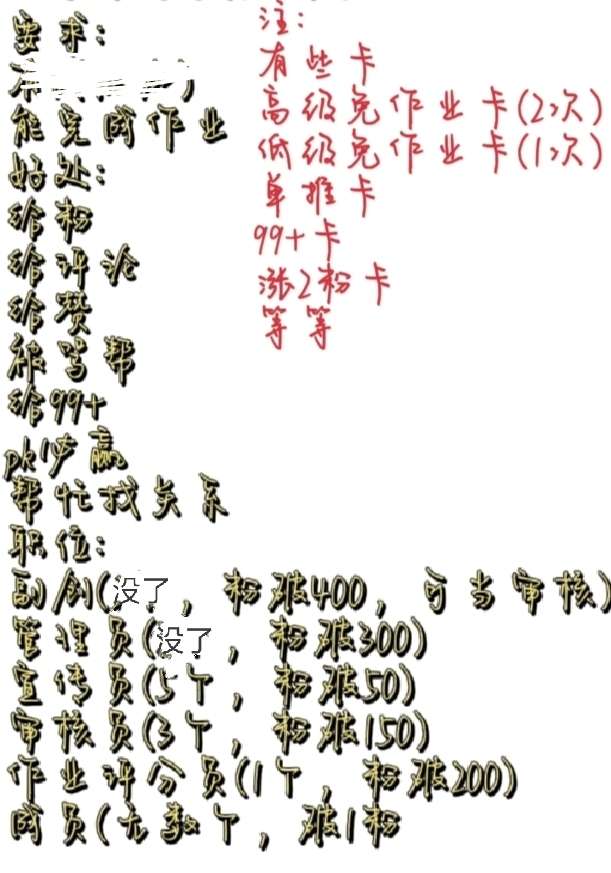 要求：
能完成作业
好处：
给粉
给评论
给赞
被骂帮
给99+
pk1岁赢
帮忙找关系
职位：
副创(没了，粉破400，可当审核)
管理员(没了，粉破300)
宣传员(5个，粉破50)
审核员(3个，粉破150)
作业评分员(1个，粉破200)
成员(无数个，破1粉
注：
有些卡
高级免作业卡(2次)
低级免作业卡(1次)
单推卡
99+卡
涨2粉卡
等等